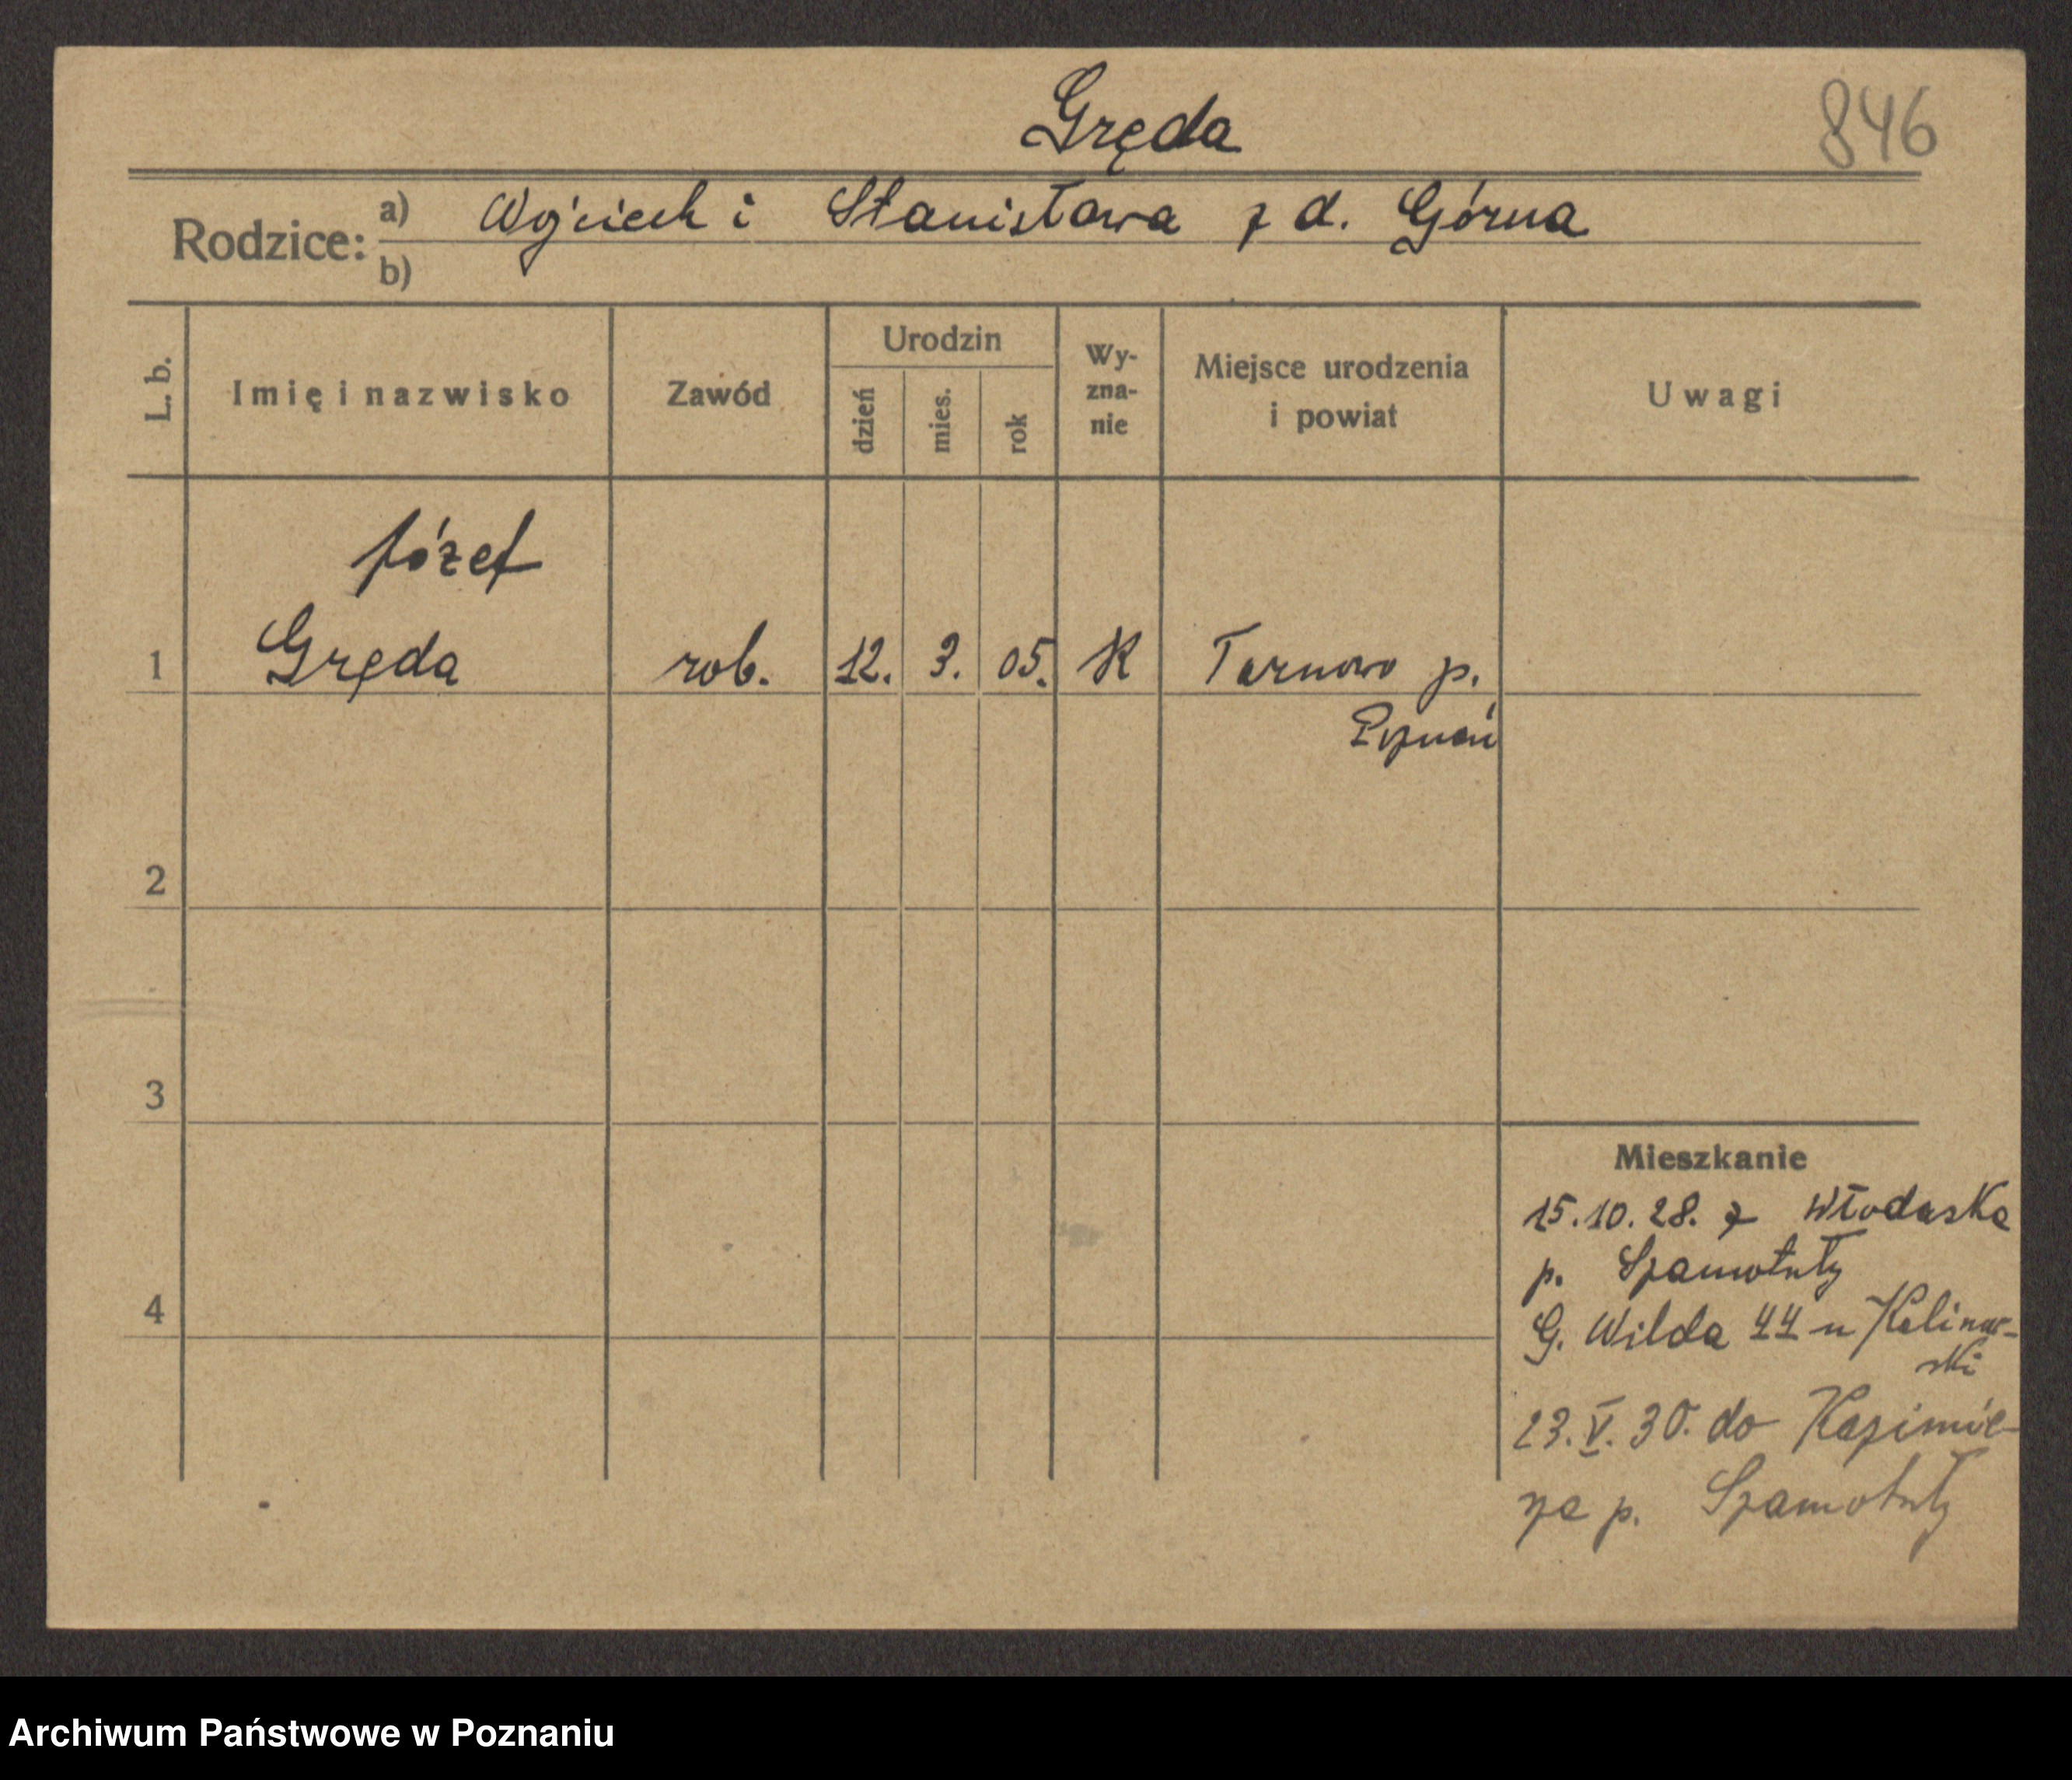 Gręda
846
Rodzice:
a) Wojciech i Stanisława z d. Górna
b)
L. b.
Imię i nazwisko
Zawód
Urodzin
dzień
mies.
rok
Wy-
zna-
nie
Miejsce urodzenia
i powiat
Uwagi
Józef
1 Gręda rob. 12. 3. 05. K Tarnowo p.
Poznań
2
3
4
Mieszkanie
15.10.28. z
p. Szamotuły
G. Wilda 44 u Kalinow-
ski
23. V. 30. do Kazimie-
rza p. Szamotuły
Archiwum Państwowe w Poznaniu